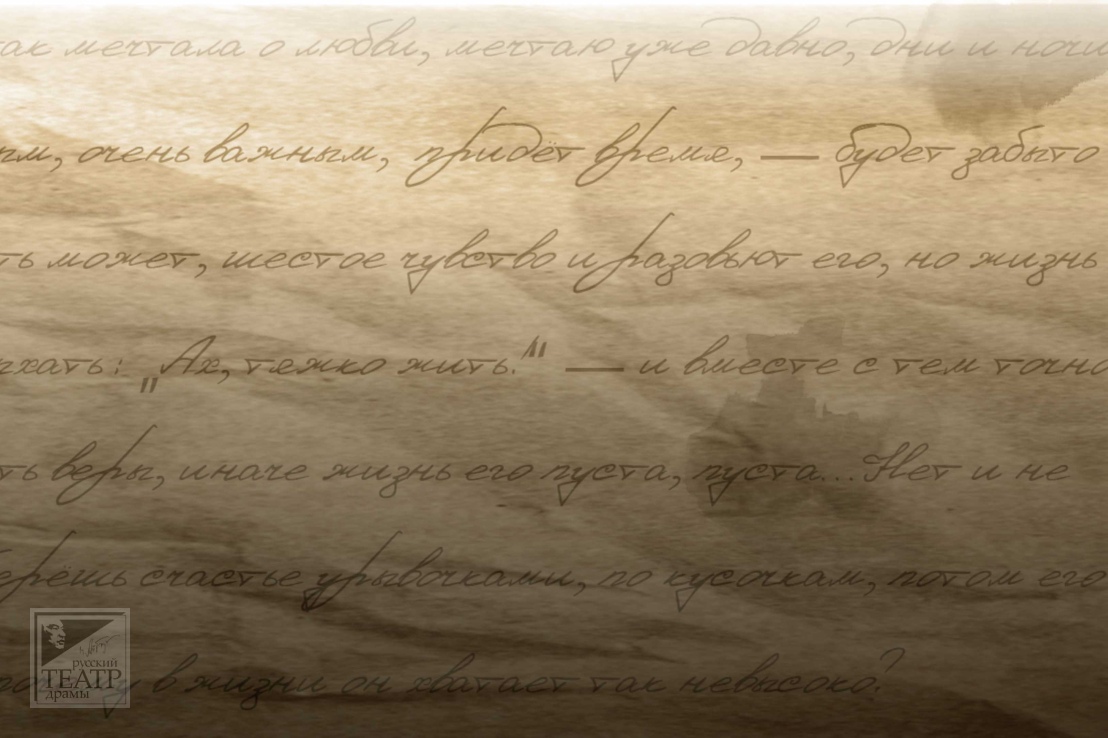 так мечтала о любви, мечтаю уже давно, дни и ночи
очень важным, придёт время, — будет забыто
может, шестое чувство и разовьют его, но жизнь
„Ах, тяжко жить!“ — и вместе с тем точно
веры, иначе жизнь его пуста, пуста...Нет и не
счастье урывочками, по кусочкам, потом его
в жизни он хватает так невысоко?
русский
ТЕАТР
драмы